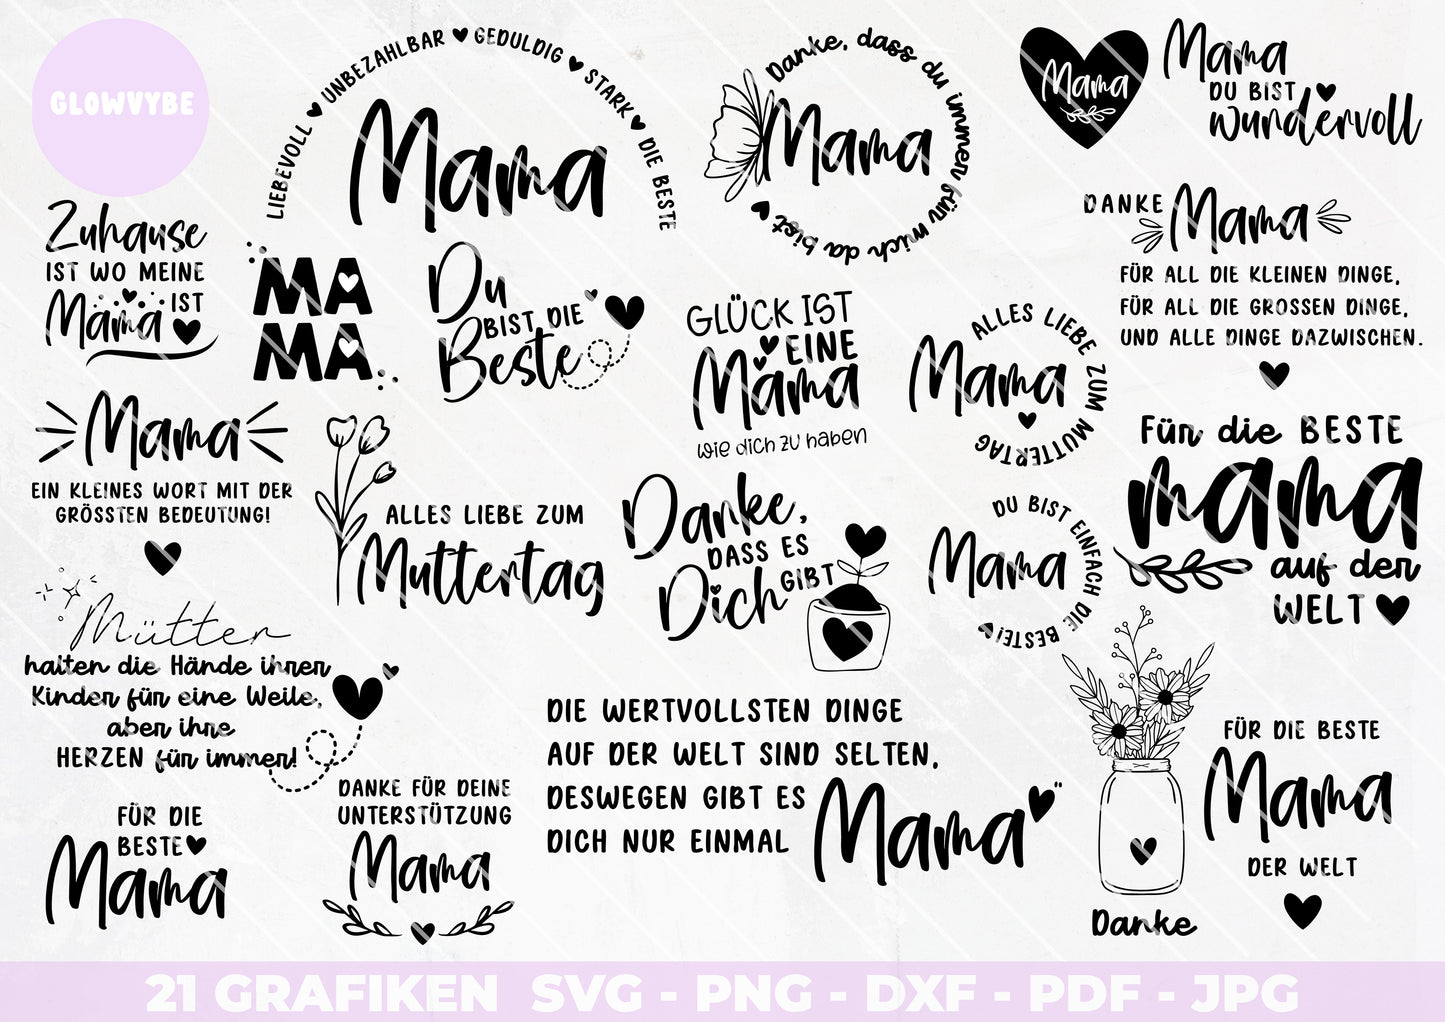 GLOWVYBE
LIEBEVOLL UNBEZAHLBAR GEDULDIG STARK DIE BESTE
Mama
Danke, dass du immer für mich da bist
Mama
Mama
Mama
DU BIST
wundervoll
Zuhause
IST WO MEINE
Mama IST
MA
MA
Du
BIST DIE
Beste
GLÜCK IST
EINE
Mama
wie dich zu haben
ALLES LIEBE ZUM MUTTERTAG
Mama
DANKE Mama
FÜR ALL DIE KLEINEN DINGE,
FÜR ALL DIE GROSSEN DINGE,
UND ALLE DINGE DAZWISCHEN.
Mama
EIN KLEINES WORT MIT DER
GRÖSSTEN BEDEUTUNG!
ALLES LIEBE ZUM
Muttertag
Danke,
DASS ES
Dich GIBT
DU BIST EINFACH DIE BESTE!
Mama
Für die BESTE
mama
auf der
WELT
Mütter
halten die Hände ihrer
Kinder für eine Weile,
aber ihre
HERZEN für immer!
DIE WERTVOLLSTEN DINGE
AUF DER WELT SIND SELTEN,
DESWEGEN GIBT ES
DICH NUR EINMAL Mama
Danke
FÜR DIE BESTE
Mama
DER WELT
FÜR DIE
BESTE
Mama
DANKE FÜR DEINE
UNTERSTÜTZUNG
Mama
21 GRAFIKEN SVG - PNG - DXF - PDF - JPG